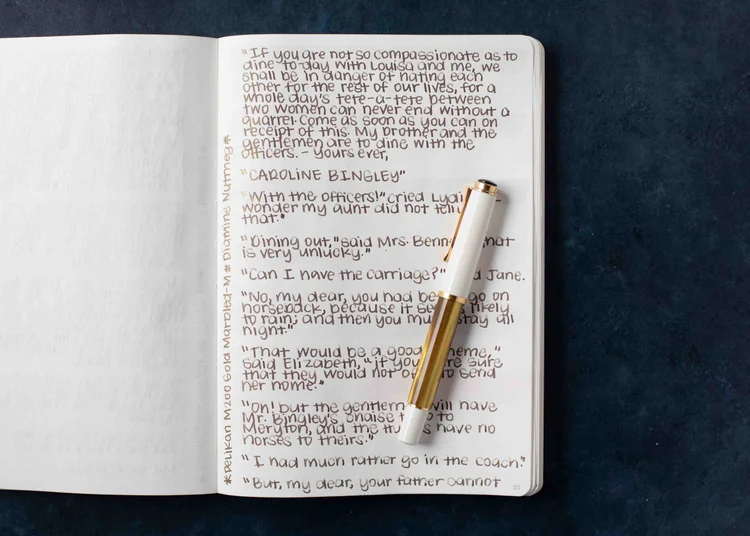 "If you are not so compassionate as to
dine to-day with Louisa and me, we
shall be in danger of hating each
other for the rest of our lives, for a
whole day's tete-a-tete between
two women can never end without a
quarrel. Come as soon as you can on
receipt of this. My brother and the
gentlemen are to dine with the
officers. - Yours ever,
"CAROLINE BINGLEY"
"With the officers!" cried
wonder my aunt did not tell
that."
"Dining out," said Mrs.
is very unlucky."
"Can I have the carriage?" Jane.
"No, my dear, you had go on
horseback, because it likely
to rain; and then you stay all
night."
"That would be a good
said Elizabeth, "if you sure
that they would not to send
her home."
"Oh! but the will have
Mr. Bingley's chaise to
Meryton, and the have no
horses to theirs."
"I had much rather go in the coach."
"But, my dear, your father cannot
*Pelikan M200 Gold Marbled-M * Diamine Nutmeg*